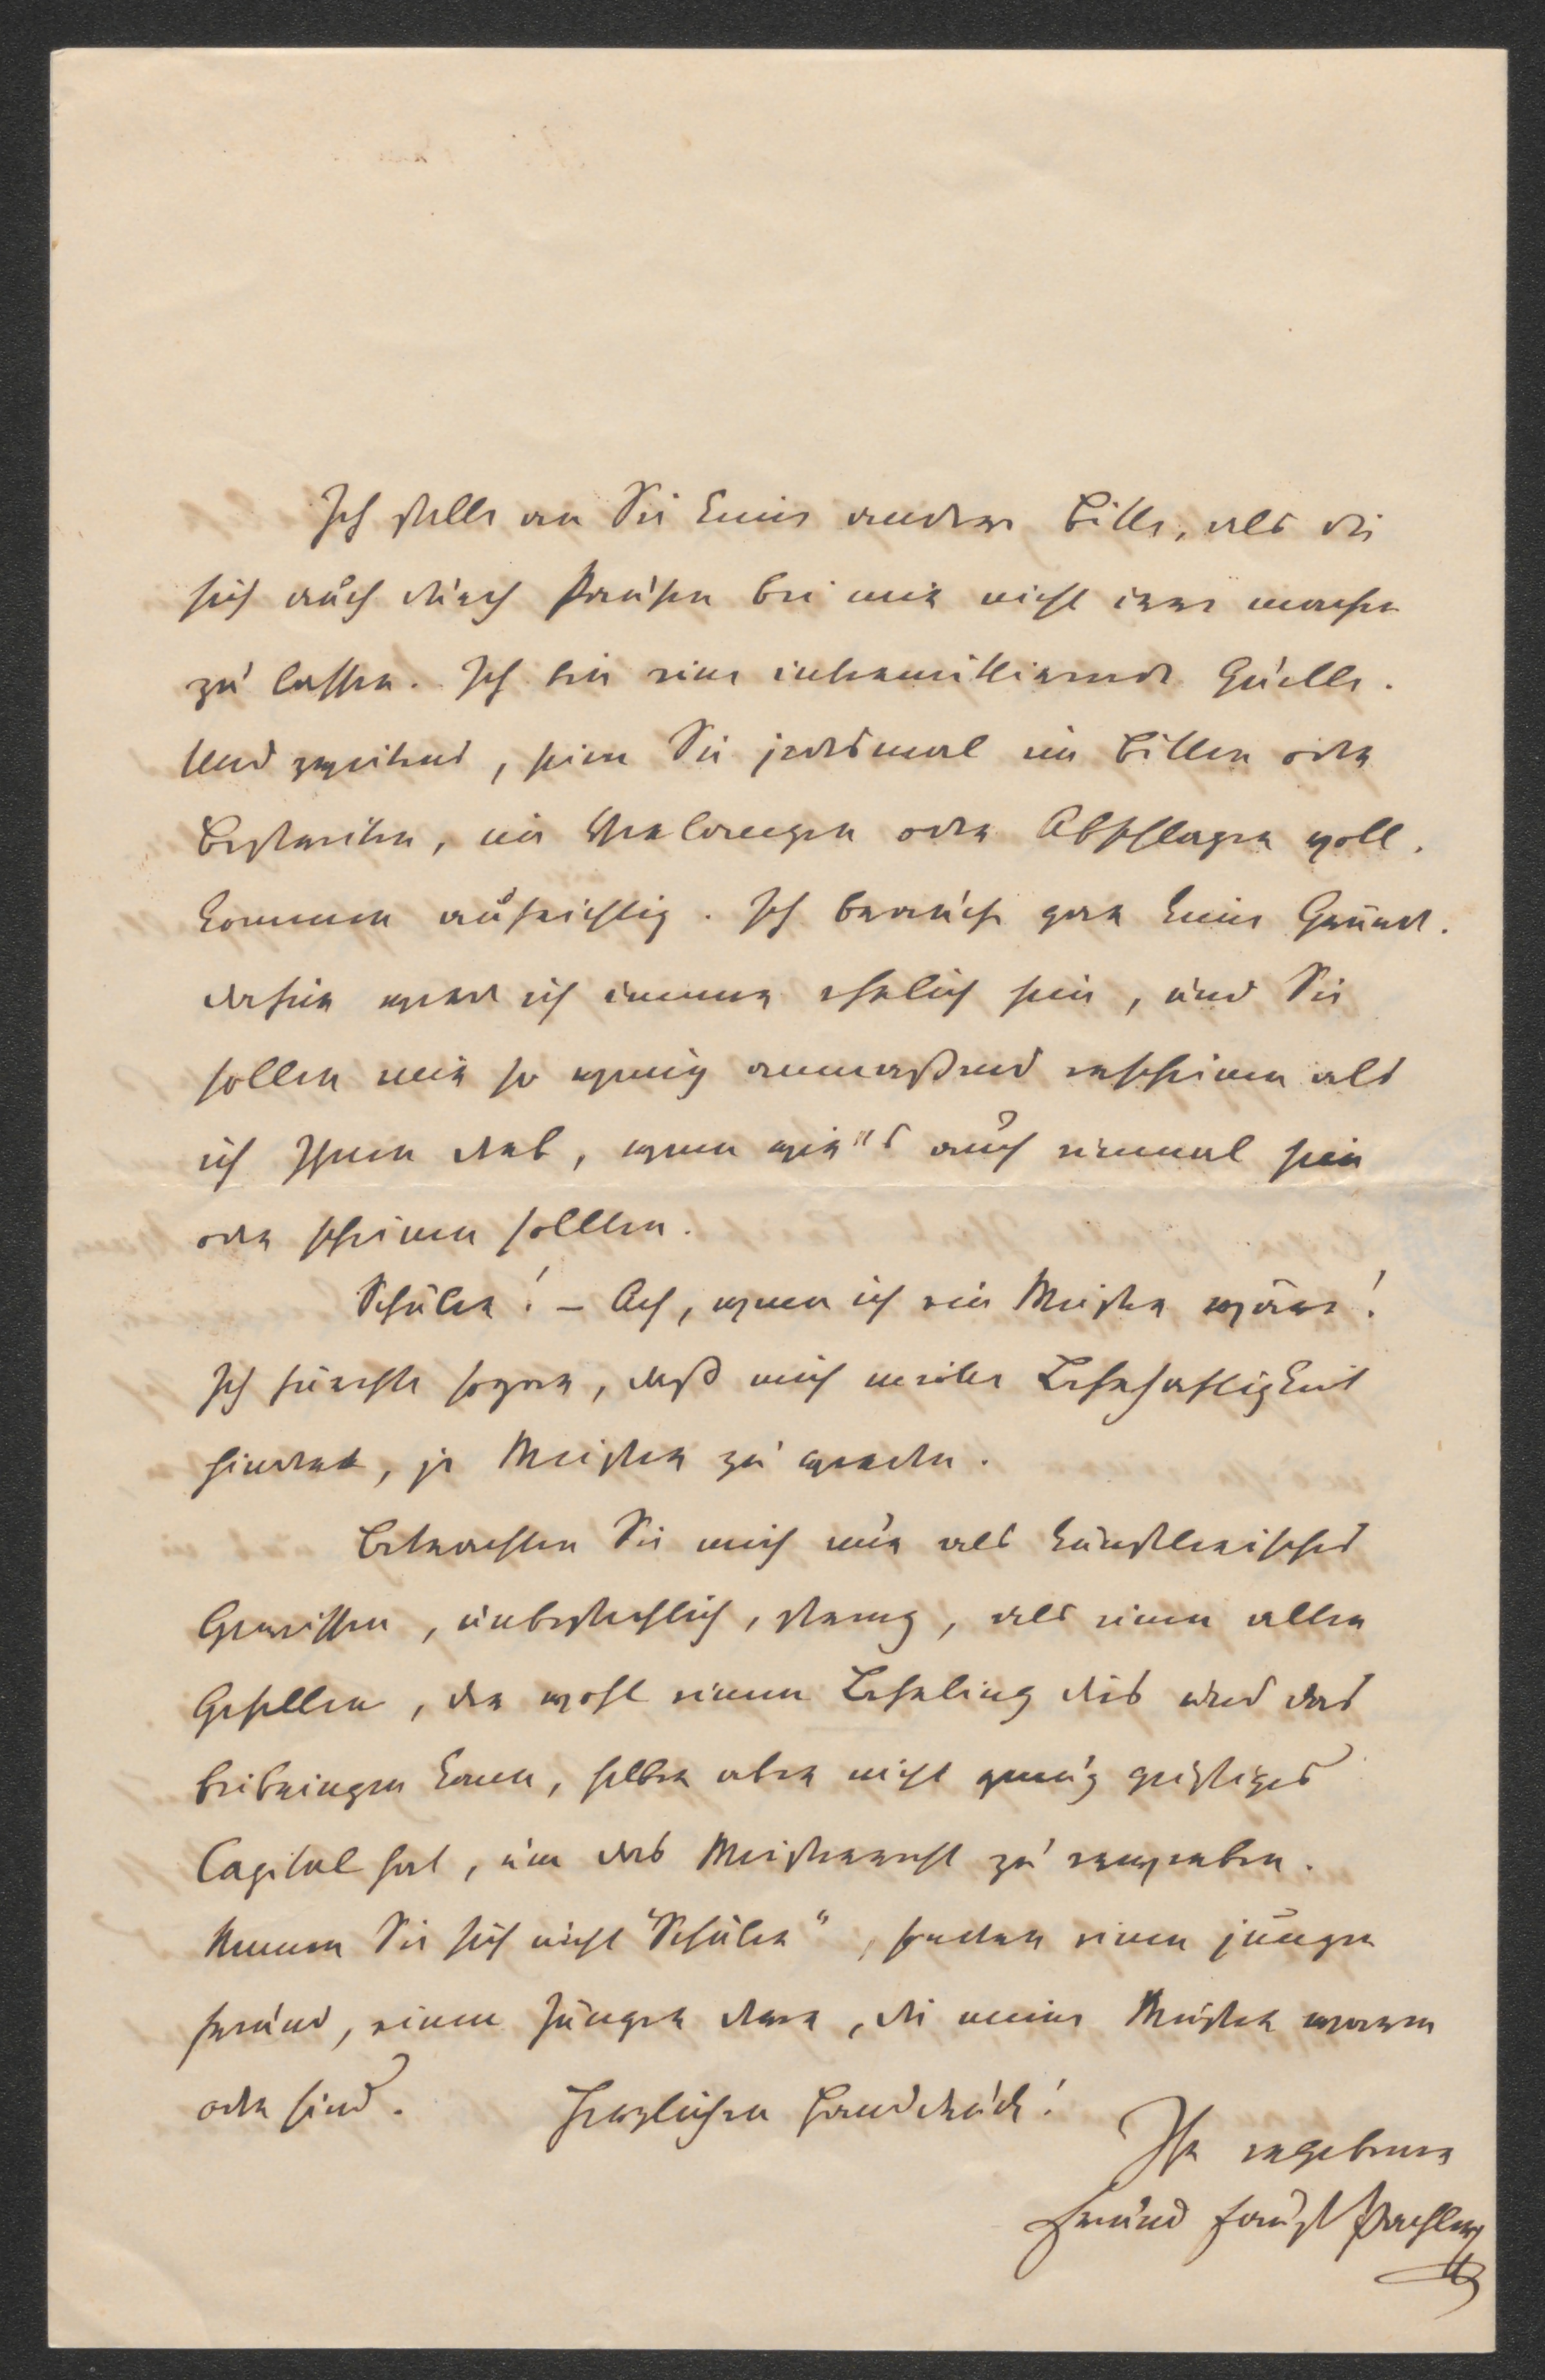 Ich stelle an Sie keine andere Bitte, als die
sich auch durch Pausen bei mir nicht irre machen
zu lassen. Ich bin eine intermittierende Quelle.
Und zweitens, seien Sie jedesmal im Bitten oder
Bestreiten, im Verlangen oder Abschlagen voll-
kommen aufrichtig. Ich brauche gar keine Gründe.
dafür werde ich immer ehrlich sein, und Sie
sollen mir so wenig anmaßend erscheinen als
ich Ihnen derb, wenn wir"s auch einmal sein
oder scheinen sollten.
Schüler! – Ach, wenn ich ein Meister wäre!
Ich fürchte sogar, daß mich meine Lehrhaftigkeit
hindert, je Meister zu werden.
Betrachten Sie mich nur als künstlerisches
Gewissen, unbestechlich, streng, als einen alten
Gesellen, der wohl einem Lehrling dies und das
beibringen kann, selber aber nicht genug geistiges
Capital hat, um das Meisterrecht zu erwerben.
Nennen Sie sich nicht "Schüler", sondern einen jungen
Freund, einen Jünger derer, die meine Meister waren
oder sind. Herzlichen Handdruck!
Ihr ergebener
Freund Faust Pachler